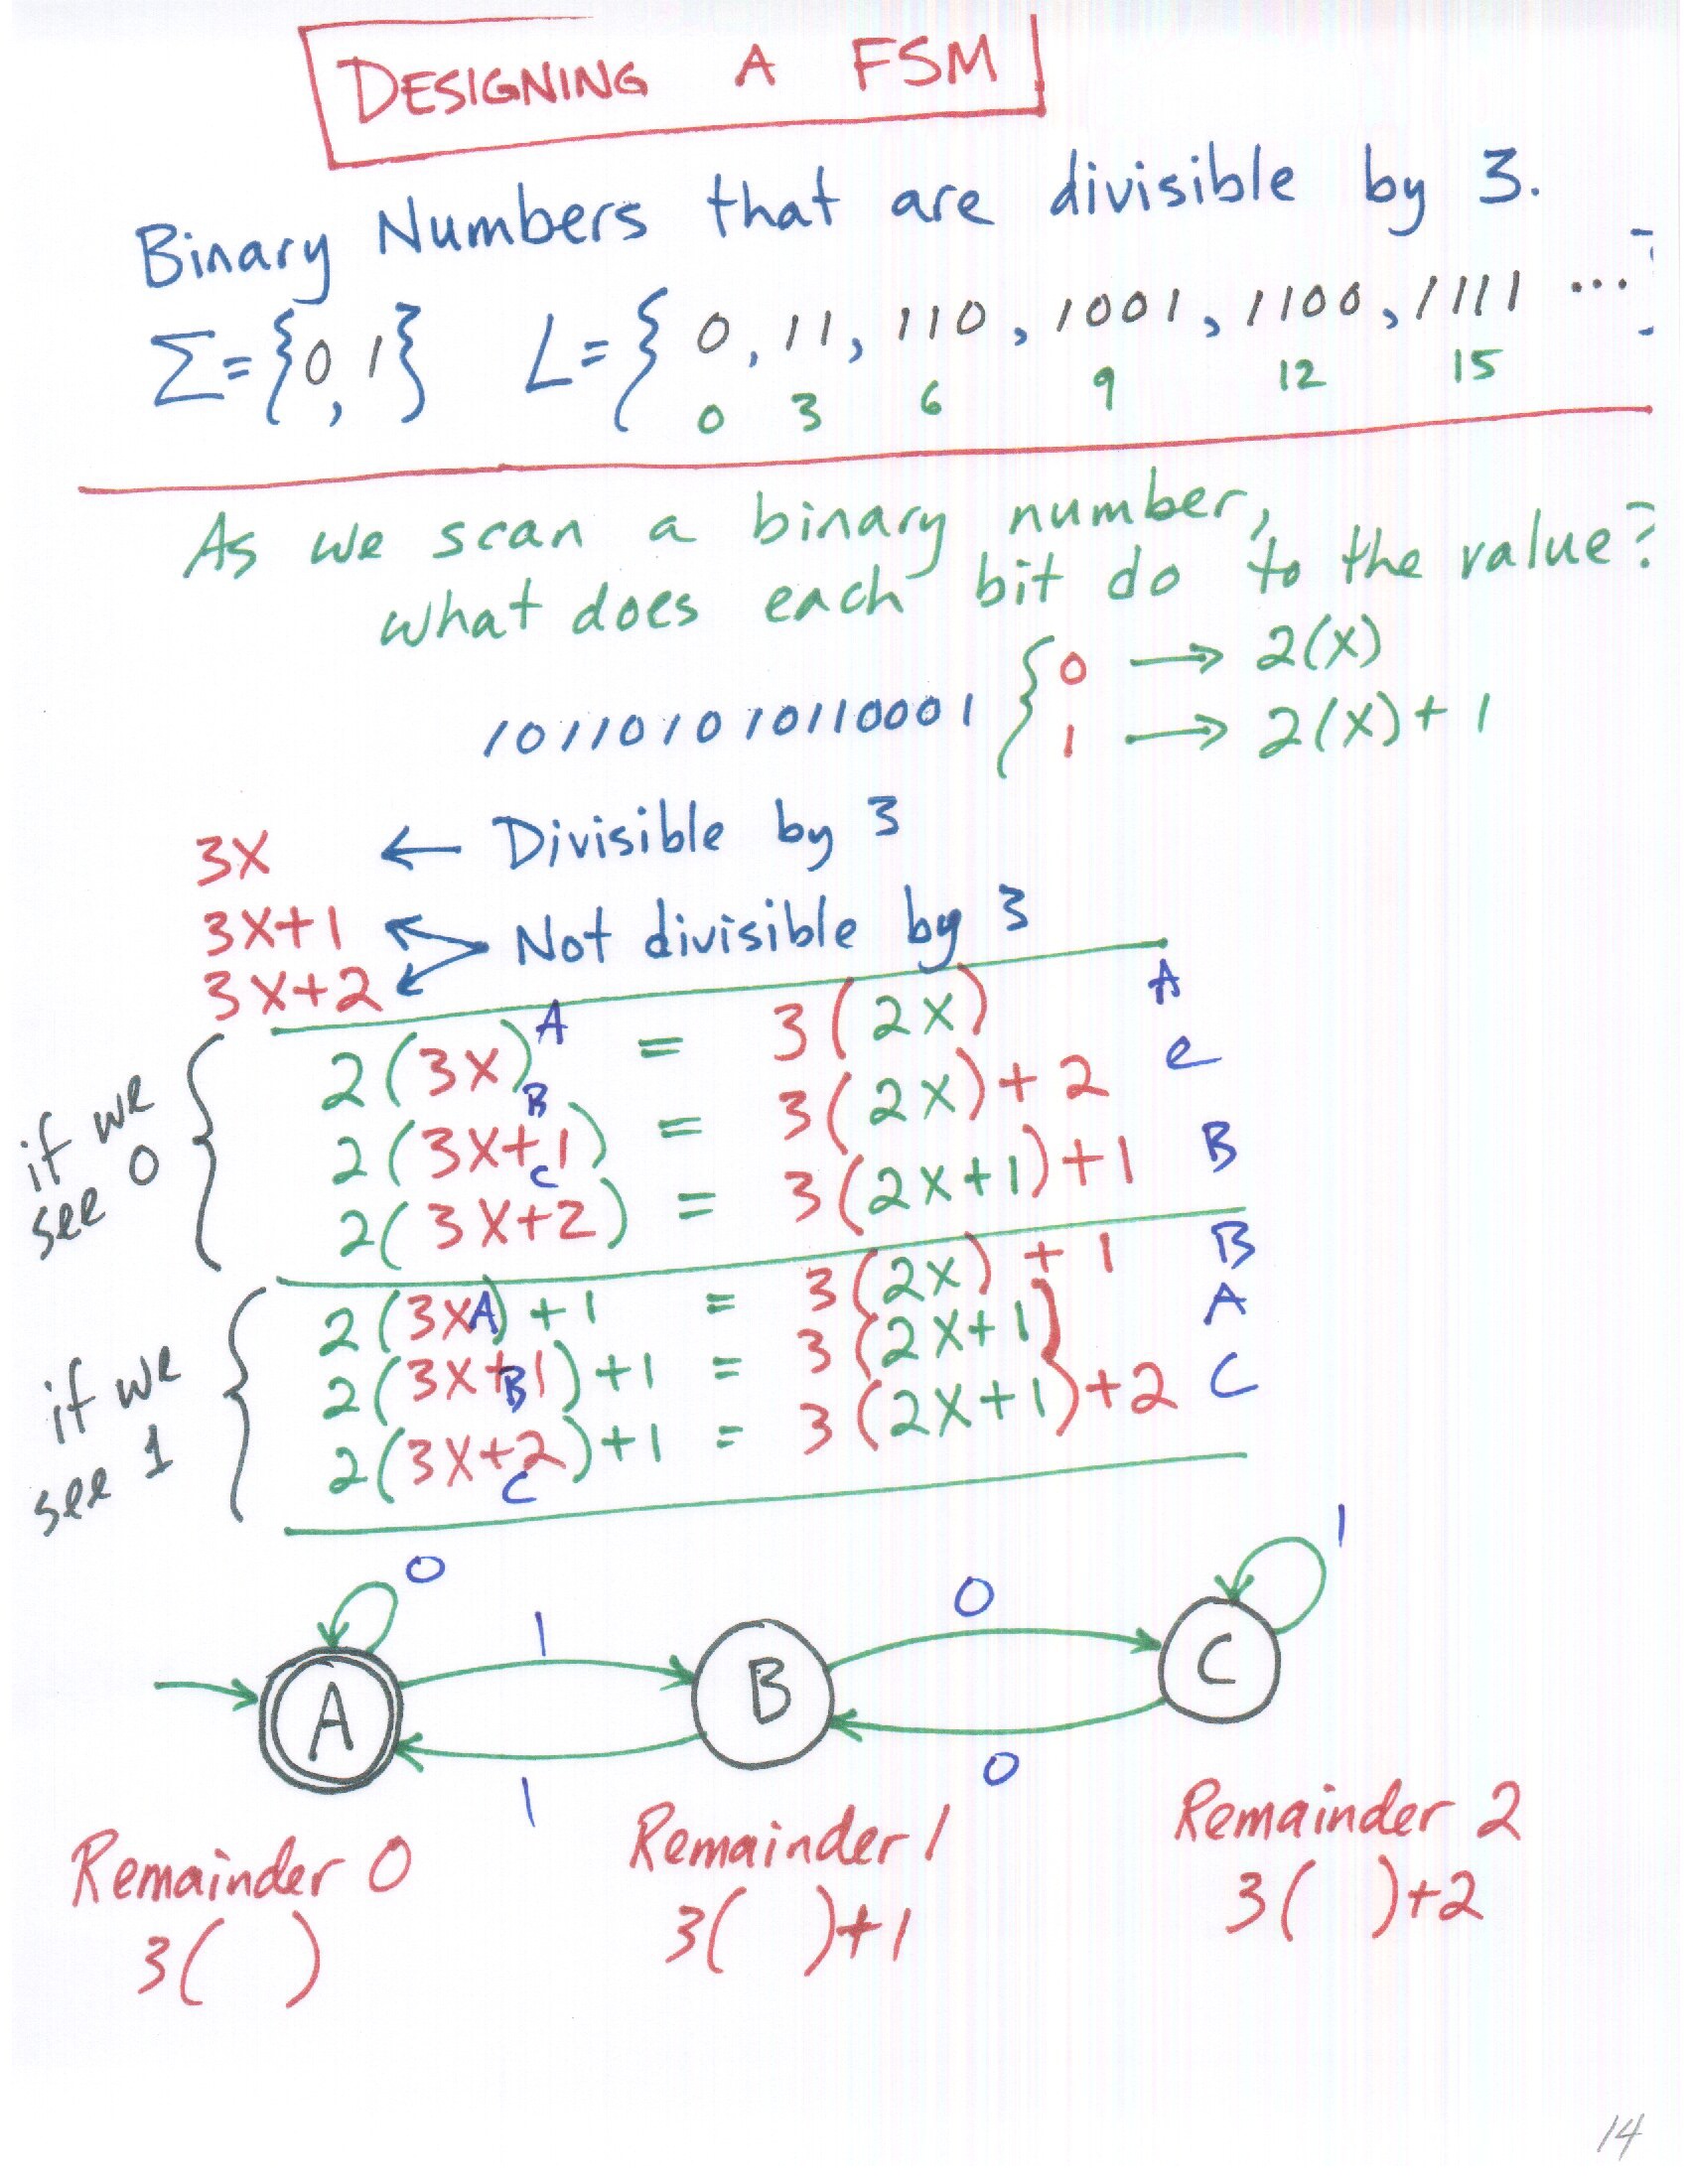 DESIGNING A FSM
Binary Numbers that are divisible by 3.
Σ={0,1} L={0, 11, 110, 1001, 1100, 1111 ...}
0 3 6 9 12 15
As we scan a binary number,
what does each bit do to the value?
0 → 2(X)
101101010110001 {
1 → 2(X)+1
3X ← Divisible by 3
3X+1
Not divisible by 3
3X+2
if we see 0
2(3X) A = 3(2X) A
2(3X+1) B = 3(2X)+2 C
2(3X+2) C = 3(2X+1)+1 B
if we see 1
2(3X)+1 A = 3(2X)+1 B
2(3X+1)+1 B = 3(2X+1) A
2(3X+2)+1 C = 3(2X+1)+2 C
0 1 0 1
A B C
1 0
Remainder 0 Remainder 1 Remainder 2
3( ) 3( )+1 3( )+2
14